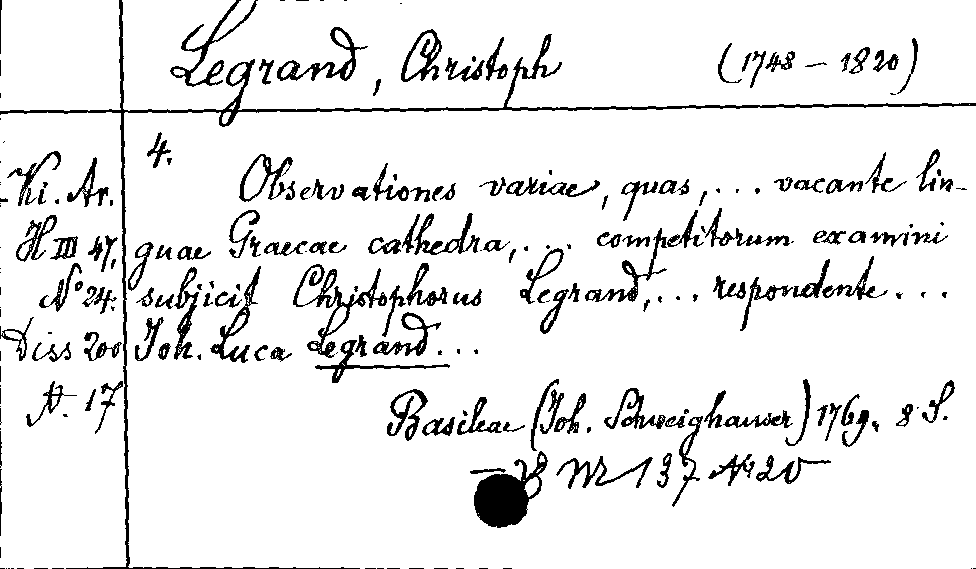 Legrand, Christoph (1748 – 1820)
4.
Ki. Ar. Observationes variae, quas, ... vacante lin-
H III 47, guae Graecae cathedra, ... competitorum examini
N° 24. subjicit Christophorus Legrand, ... respondente ...
Diss 200 Joh. Luca Legrand ...
N. 17
Basileae (Joh. Schweighauser) 1769. 8 S.
137 N° 20